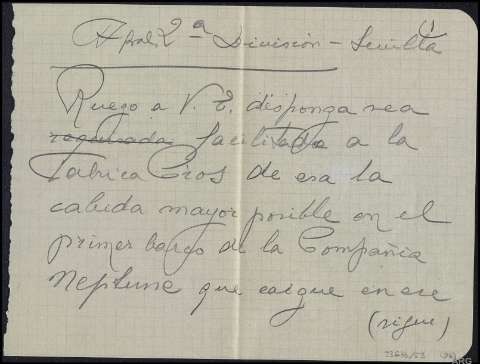 (1)
Gral 2ª División - Sevilla
Ruego a V. E. disponga sea
facilitada a la
Fabrica Cros de esa la
cabida mayor posible en el
primer barco de la Compañia
Neptune que cargue en ese
(sigue)
ARG